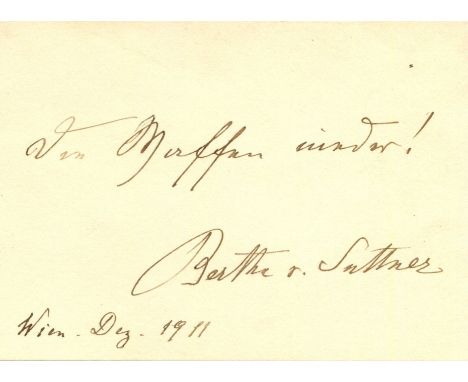 Die Waffen nieder!
Bertha v. Suttner
Wien. Dez. 1911